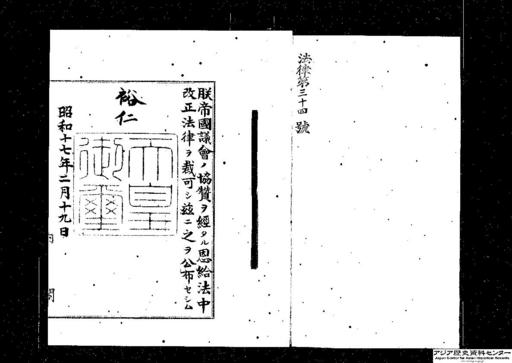 法律第三十四號
朕帝國議會ノ協贊ヲ經タル恩給法中
改正法律ヲ裁可シ茲ニ之ヲ公布セシム
裕仁
天皇御璽
昭和十七年二月十九日
内閣
アジア歴史資料センター
Japan Center for Asian Historical Records